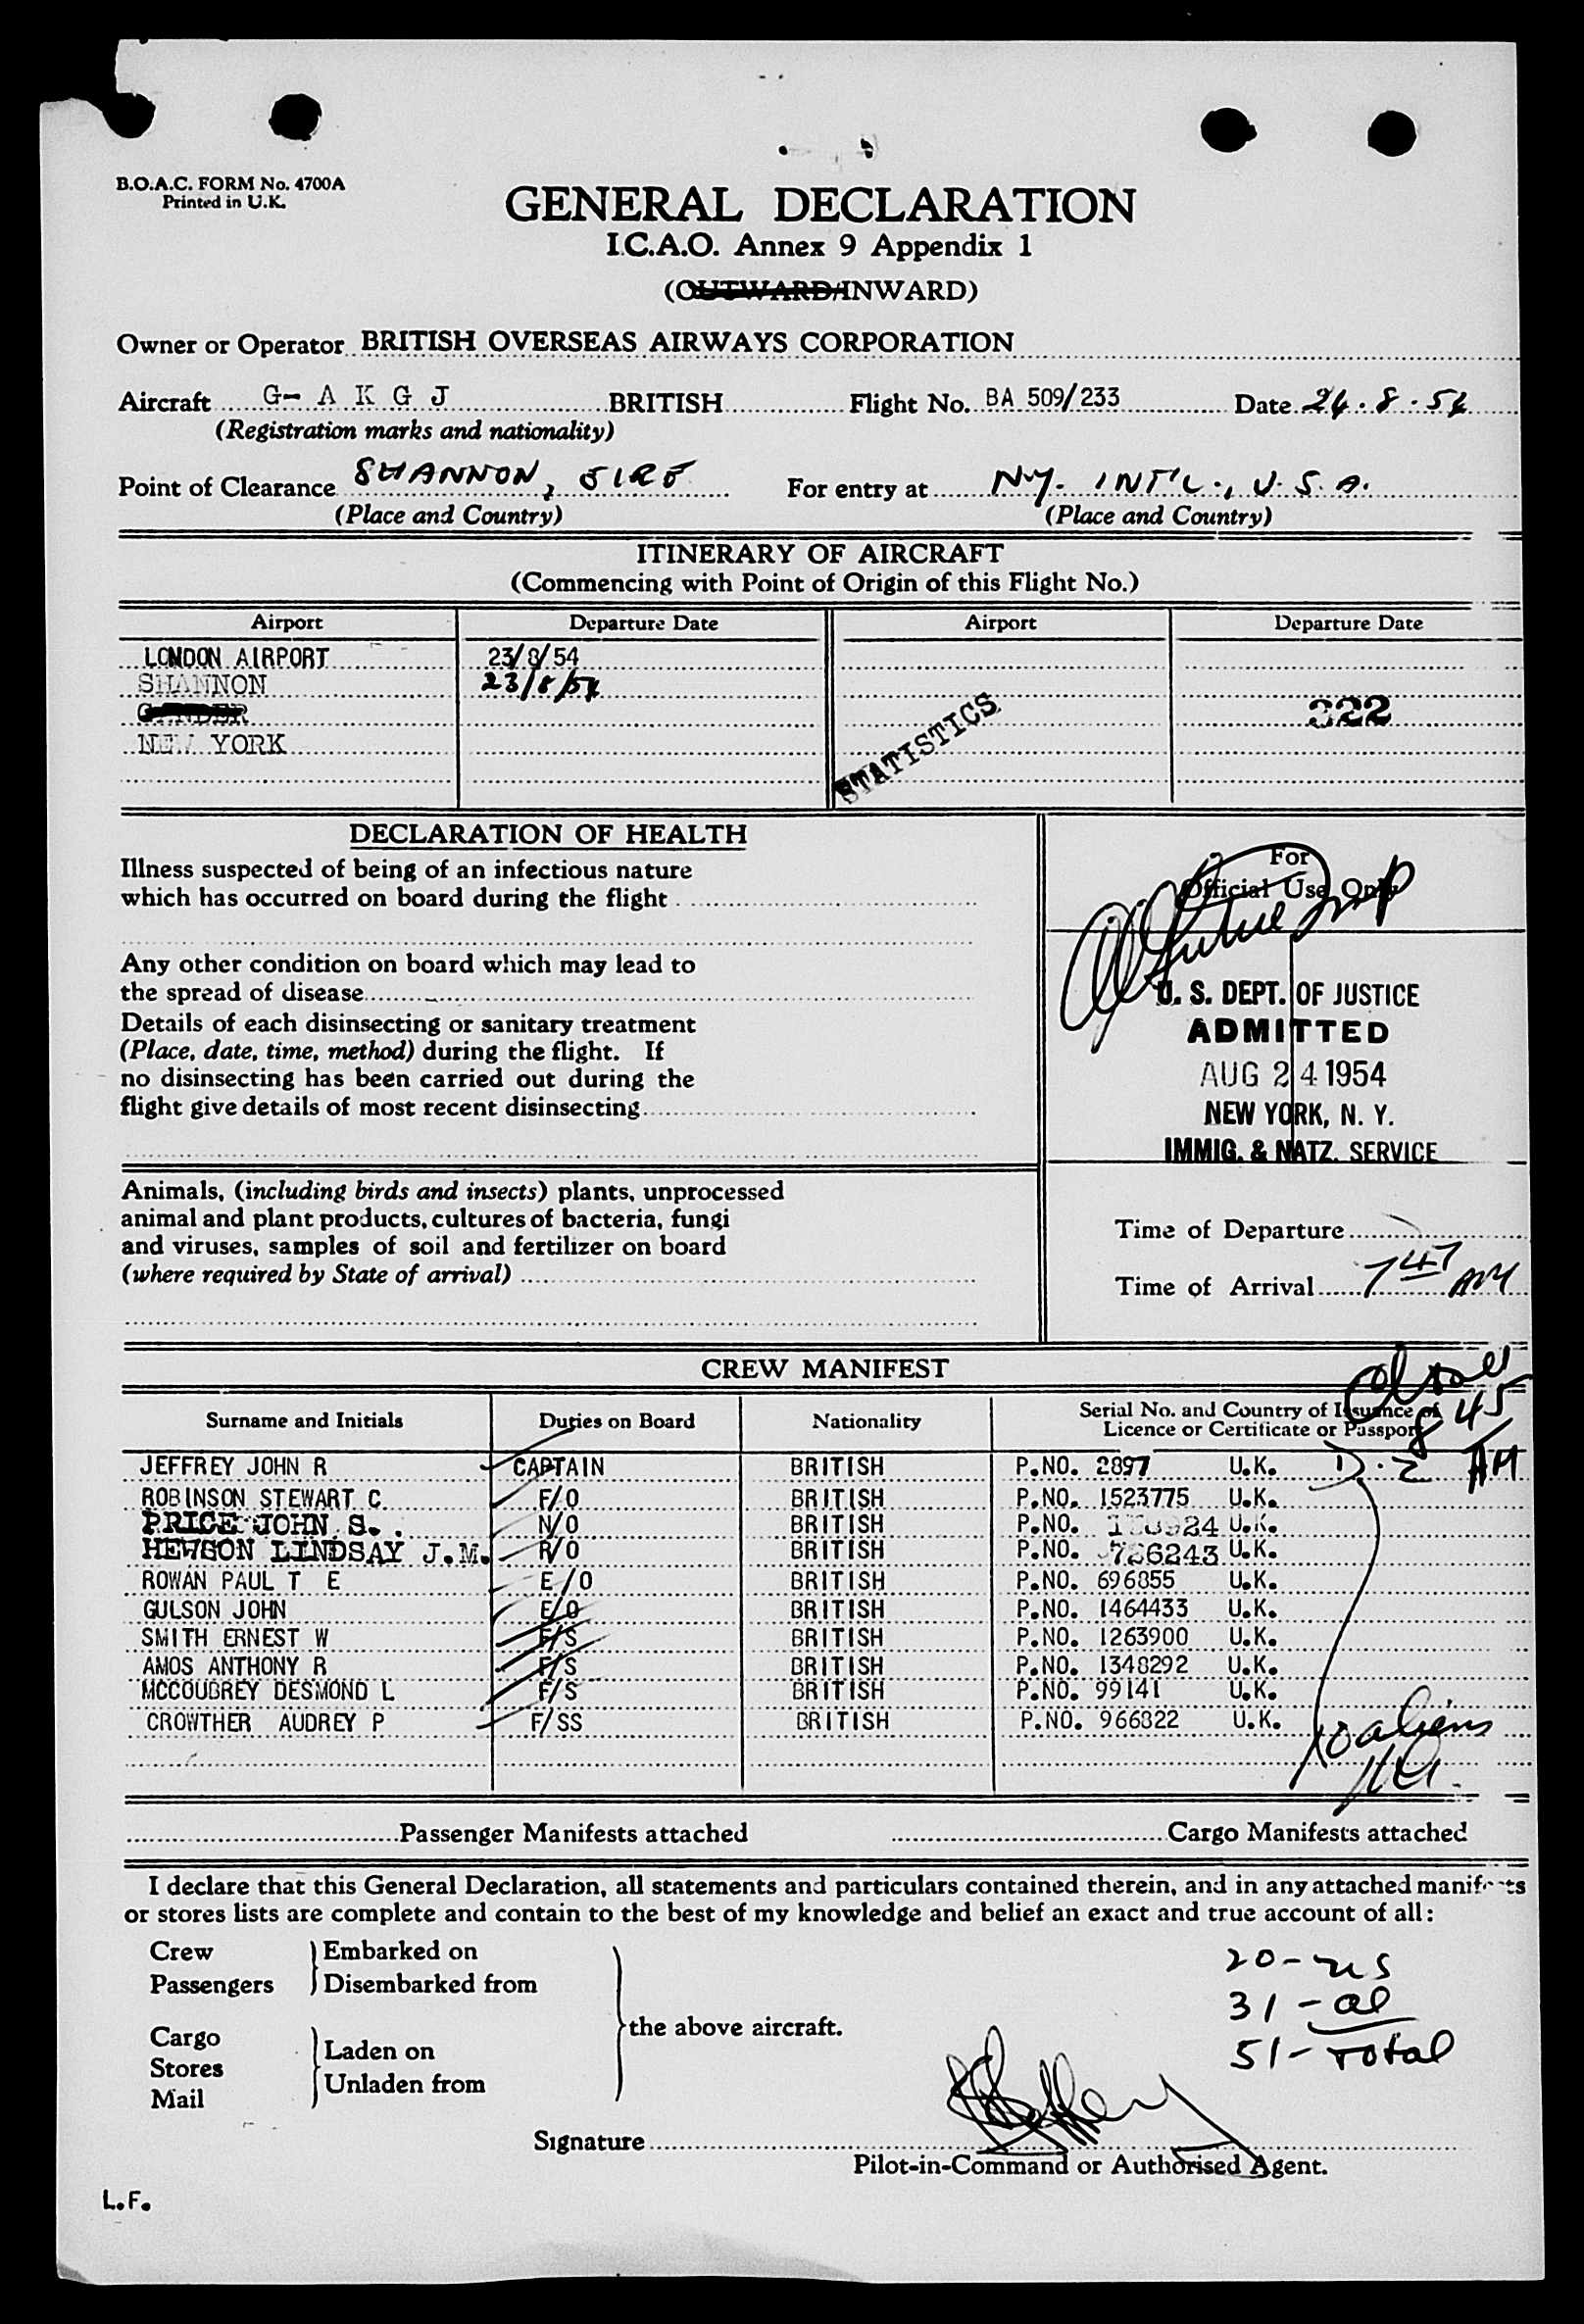 B.O.A.C. FORM No. 4700A
Printed in U.K.
GENERAL DECLARATION
I.C.A.O. Annex 9 Appendix 1
(OUTWARD/INWARD)
Owner or Operator BRITISH OVERSEAS AIRWAYS CORPORATION
Aircraft G- A K G J BRITISH Flight No. BA 509/233 Date 24.8.54
(Registration marks and nationality)
Point of Clearance SHANNON, EIRE For entry at N.Y. INT'L., U.S.A.
(Place and Country) (Place and Country)
ITINERARY OF AIRCRAFT
(Commencing with Point of Origin of this Flight No.)
Airport Departure Date Airport Departure Date
LONDON AIRPORT 23/8/54
SHANNON 23/8/54
GANDER 322
NEW YORK
STATISTICS
DECLARATION OF HEALTH
Illness suspected of being of an infectious nature
which has occurred on board during the flight
Any other condition on board which may lead to
the spread of disease
Details of each disinsecting or sanitary treatment
(Place, date, time, method) during the flight. If
no disinsecting has been carried out during the
flight give details of most recent disinsecting
Animals, (including birds and insects) plants, unprocessed
animal and plant products, cultures of bacteria, fungi
and viruses, samples of soil and fertilizer on board
(where required by State of arrival)
For
Official Use Only
U. S. DEPT. OF JUSTICE
ADMITTED
AUG 24 1954
NEW YORK, N. Y.
IMMIG. & NATZ. SERVICE
Time of Departure
Time of Arrival 7 47 AM
CREW MANIFEST
Surname and Initials Duties on Board Nationality Serial No. and Country of Issuance of
Licence or Certificate or Passport
8 45 AM
JEFFREY JOHN R CAPTAIN BRITISH P.NO. 2897 U.K.
ROBINSON STEWART C F/O BRITISH P.NO. 1523775 U.K.
PRICE JOHN S. N/O BRITISH P.NO. U.K.
HEWSON LINDSAY J.M. R/O BRITISH P.NO. 726243 U.K.
ROWAN PAUL T E E/O BRITISH P.NO. 696855 U.K.
GULSON JOHN E/O BRITISH P.NO. 1464433 U.K.
SMITH ERNEST W F/S BRITISH P.NO. 1263900 U.K.
AMOS ANTHONY R F/S BRITISH P.NO. 1348292 U.K.
MCCOUBREY DESMOND L F/S BRITISH P.NO. 99141 U.K.
CROWTHER AUDREY P F/SS BRITISH P.NO. 966822 U.K.
10 aliens
Passenger Manifests attached Cargo Manifests attached
I declare that this General Declaration, all statements and particulars contained therein, and in any attached manifests
or stores lists are complete and contain to the best of my knowledge and belief an exact and true account of all:
Crew Embarked on
Passengers Disembarked from
the above aircraft.
Cargo
Stores Laden on
Mail Unladen from
20-US
31-al
51-Total
Signature
Pilot-in-Command or Authorised Agent.
L.F.